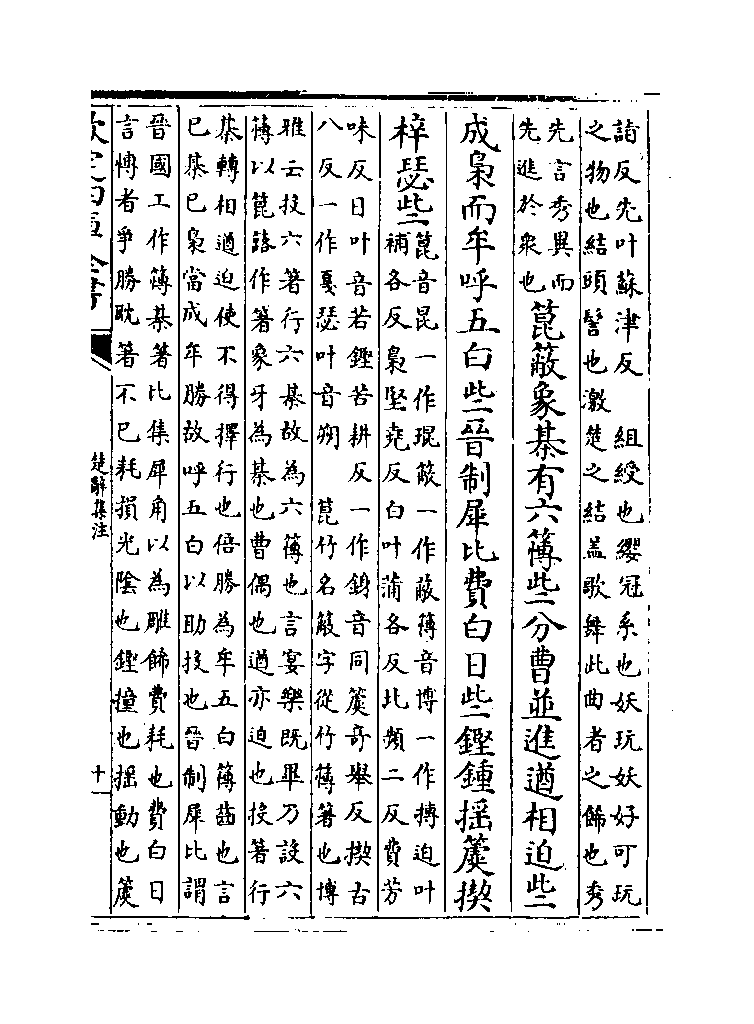 詣反先叶蘇津反　組綬也纓冠系也妖玩妖好可玩
之物也結頭髻也激楚之結盖歌舞此曲者之飾也秀
先言秀異而
先進於衆也
箟䉛象棊有六簙些分曹並進遒相迫些
成梟而牟呼五白些晉制犀比費白日些鏗鍾揺簴揳
梓瑟些
箟音昆一作琨䉛一作蔽簙音博一作摶迫叶
補各反梟堅堯反白叶蒲各反比頻二反費芳
味反日叶音若鏗苦耕反一作鋗音同簴奇舉反揳古
八反一作戞瑟叶音朔　箟竹名䉛字從竹簙箸也博
雅云投六箸行六棊故為六簙也言宴樂既畢乃設六
簙以箟簬作箸象牙為棊也曹偶也遒亦迫也投箸行
棊轉相遒迫使不得擇行也倍勝為牟五白簙齒也言
已棊已梟當成牟勝故呼五白以助投也晉制犀比謂
晉國工作簙棊箸比集犀角以為雕飾費耗也費白日
言愽者爭勝耽箸不已耗損光陰也鏗撞也揺動也簴
欽定四庫全書
楚辭集注
十一